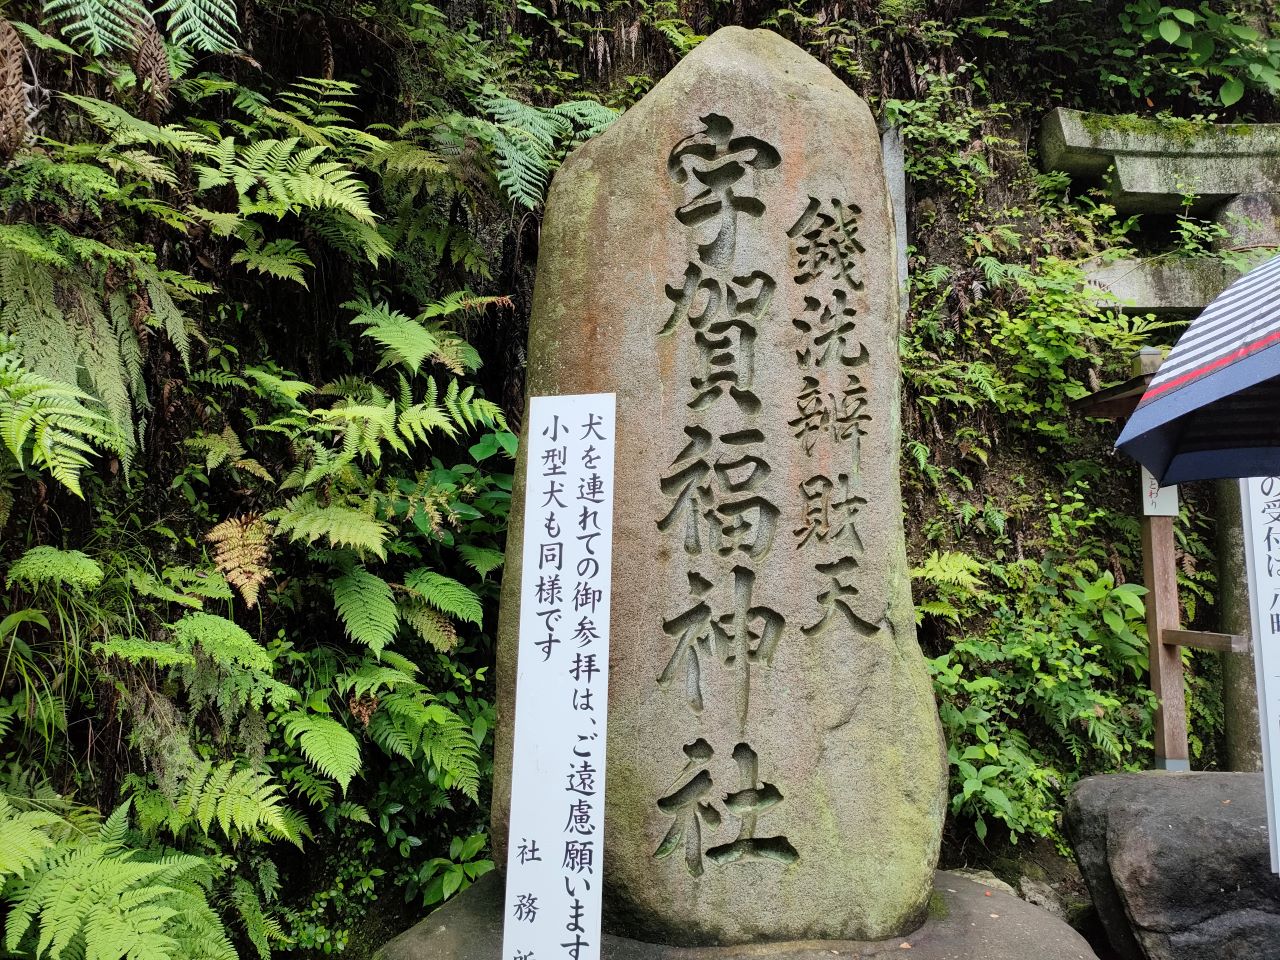 銭洗辨財天
宇賀福神社
犬を連れての御参拝は、ご遠慮願います
小型犬も同様です
社務所
の受付は八時
とわり